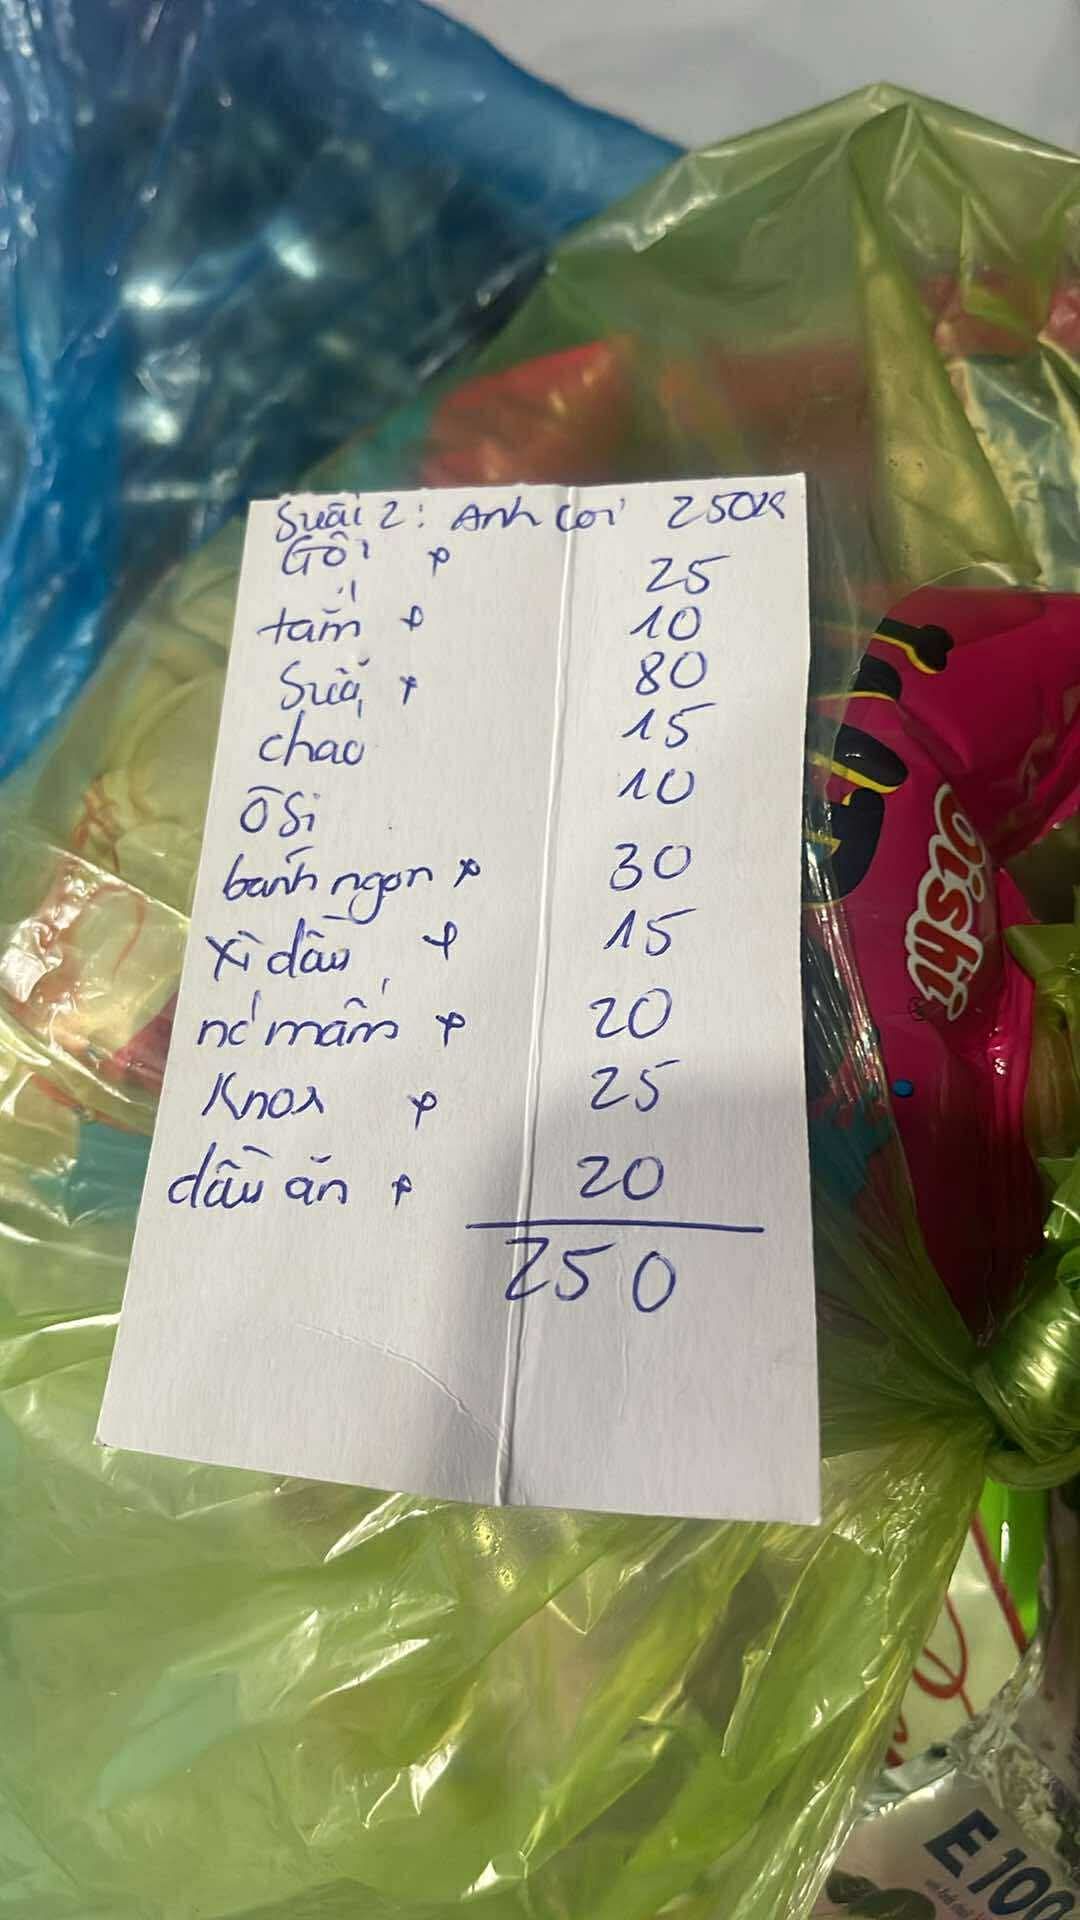 Suất 2: Anh Coi 250K
Gội + 25
tắm + 10
Sữa + 80
cháo 15
Ô Si 10
bánh ngon + 30
xì dầu + 15
nc' mắm + 20
Knor + 25
dầu ăn + 20
250
Oishi
E100